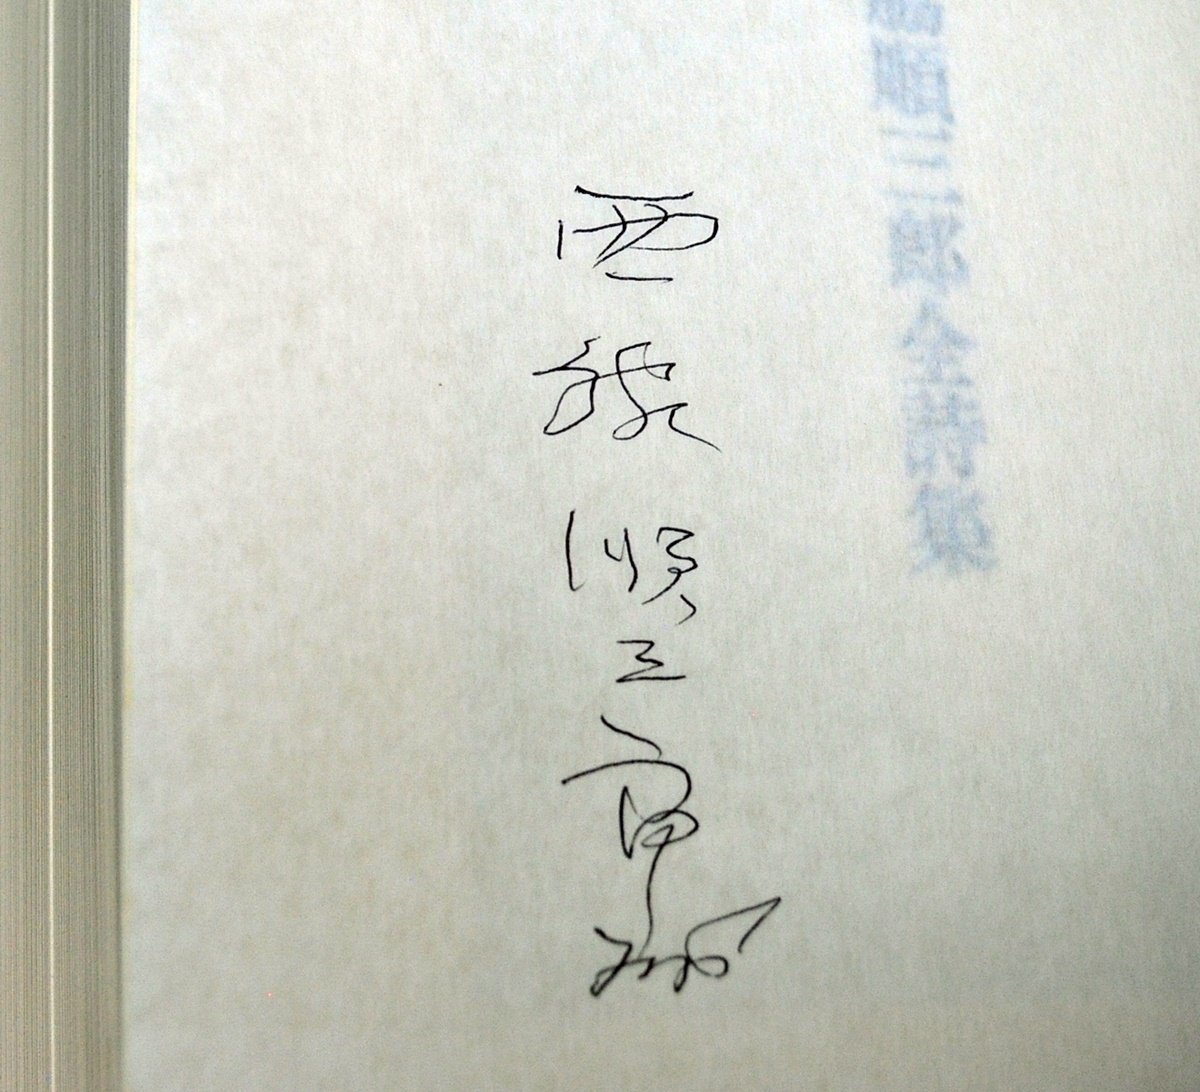 順三郎全詩集
西脇順三郎